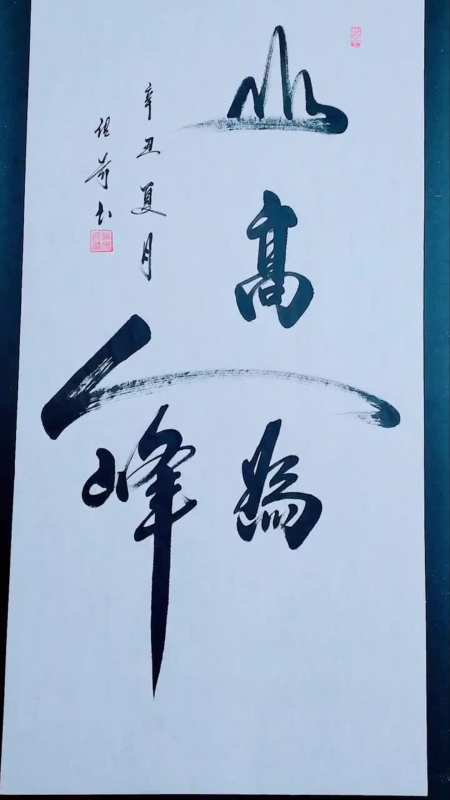 山高人為
峰
辛丑夏月
书